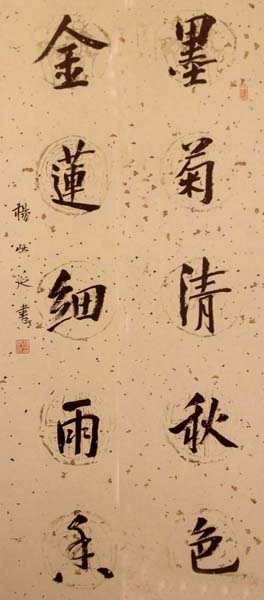 墨菊清秋色
金蓮細雨香
書